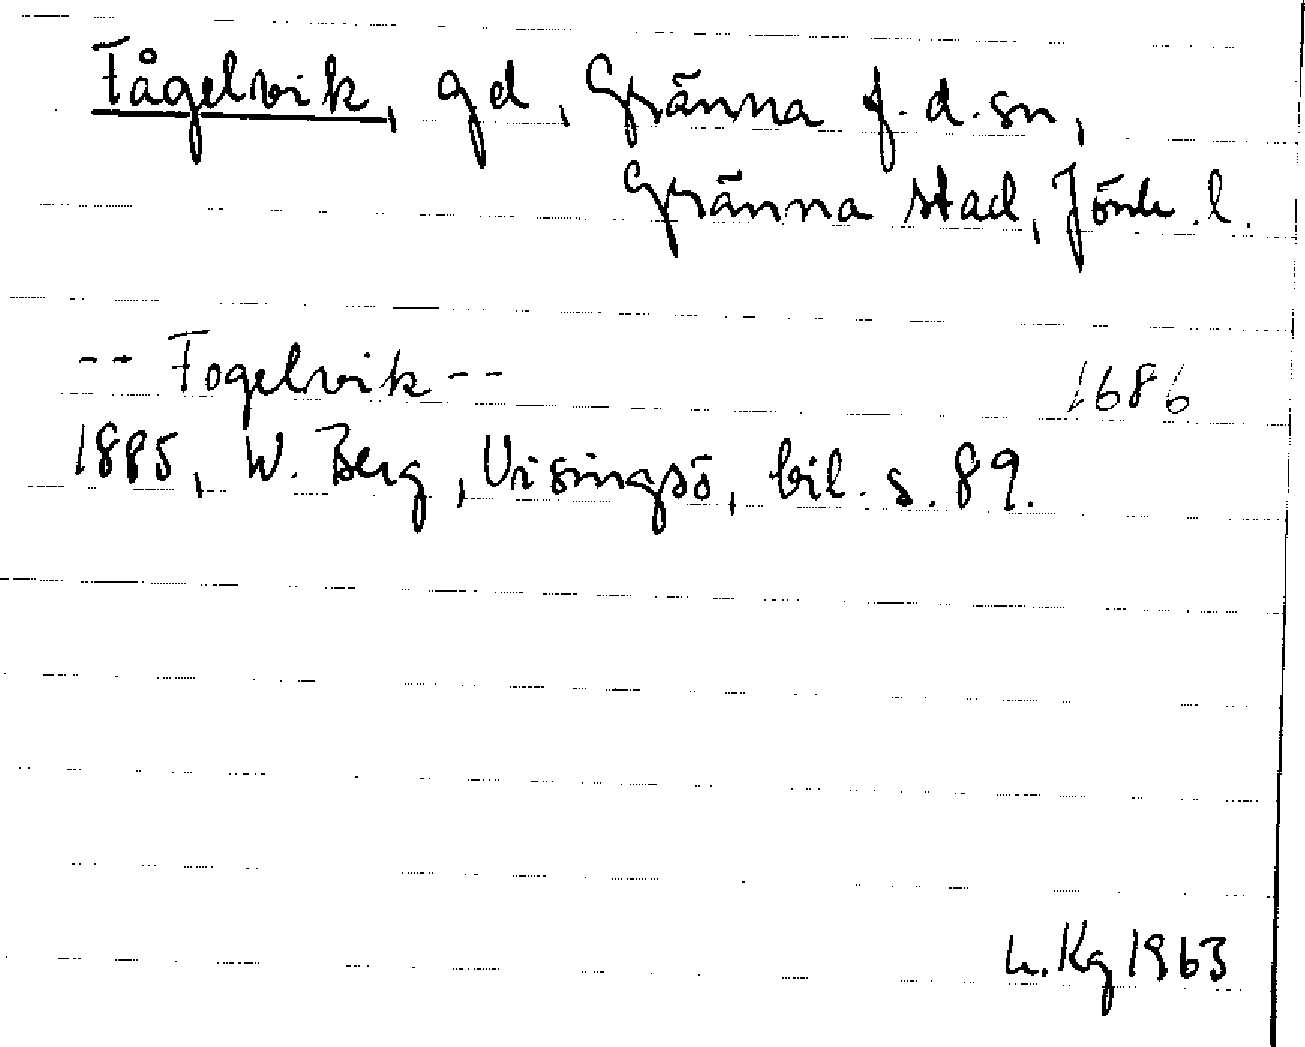 Fågelvik, gd, Gränna f.d.sn,
Gränna stad, Jönk.l.
-- Fogelvik -- 1686
1885, W. Berg, Visingsö, bil. s. 89.
L.Kg 1963